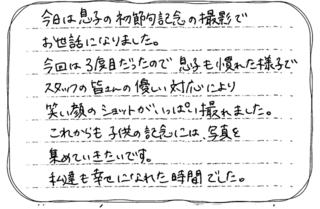 今日は息子の初節句記念の撮影で
お世話になりました。
今回は3度目だったので息子も慣れた様子で
スタッフの皆さんの優しい対応により
笑い顔のショットがいっぱい撮れました。
これからも子供の記念には、写真を
集めていきたいです。
私達も幸せになれた時間でした。